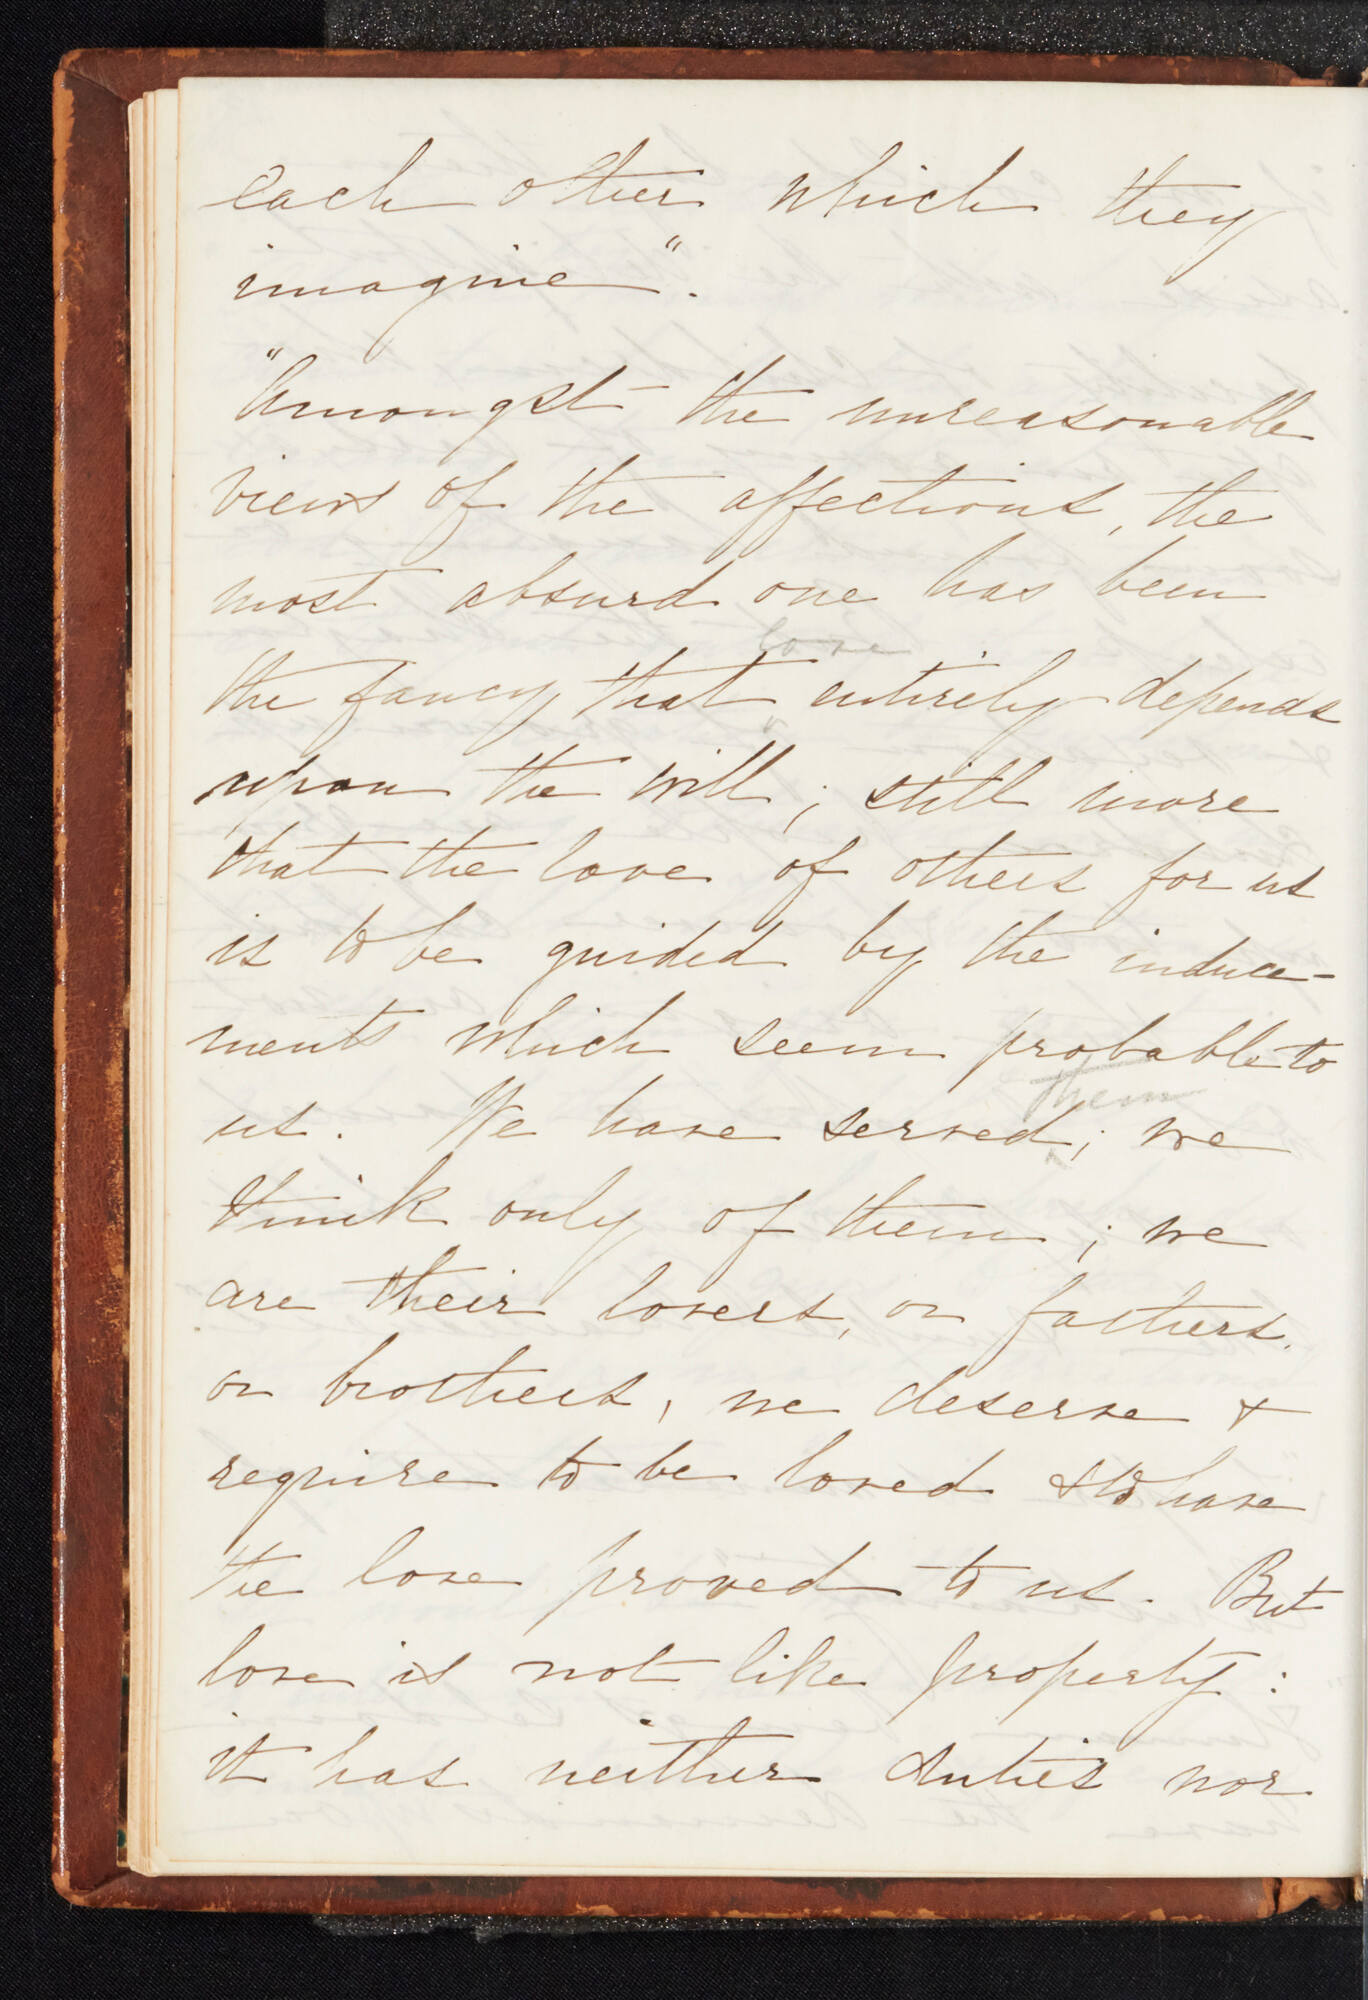 each other which they
imagine".
"Amongst the unreasonable
views of the affections, the
most absurd one has been
love
the fancy that entirely depends
upon the will; still more
that the love of others for us
is to be guided by the induce-
ments which seem probable to
them
us. We have served; we
think only of them; we
are their lovers, or fathers,
or brothers, we deserve &
require to be loved & to have
the love proved to us. But
love is not like property:
it has neither duties nor